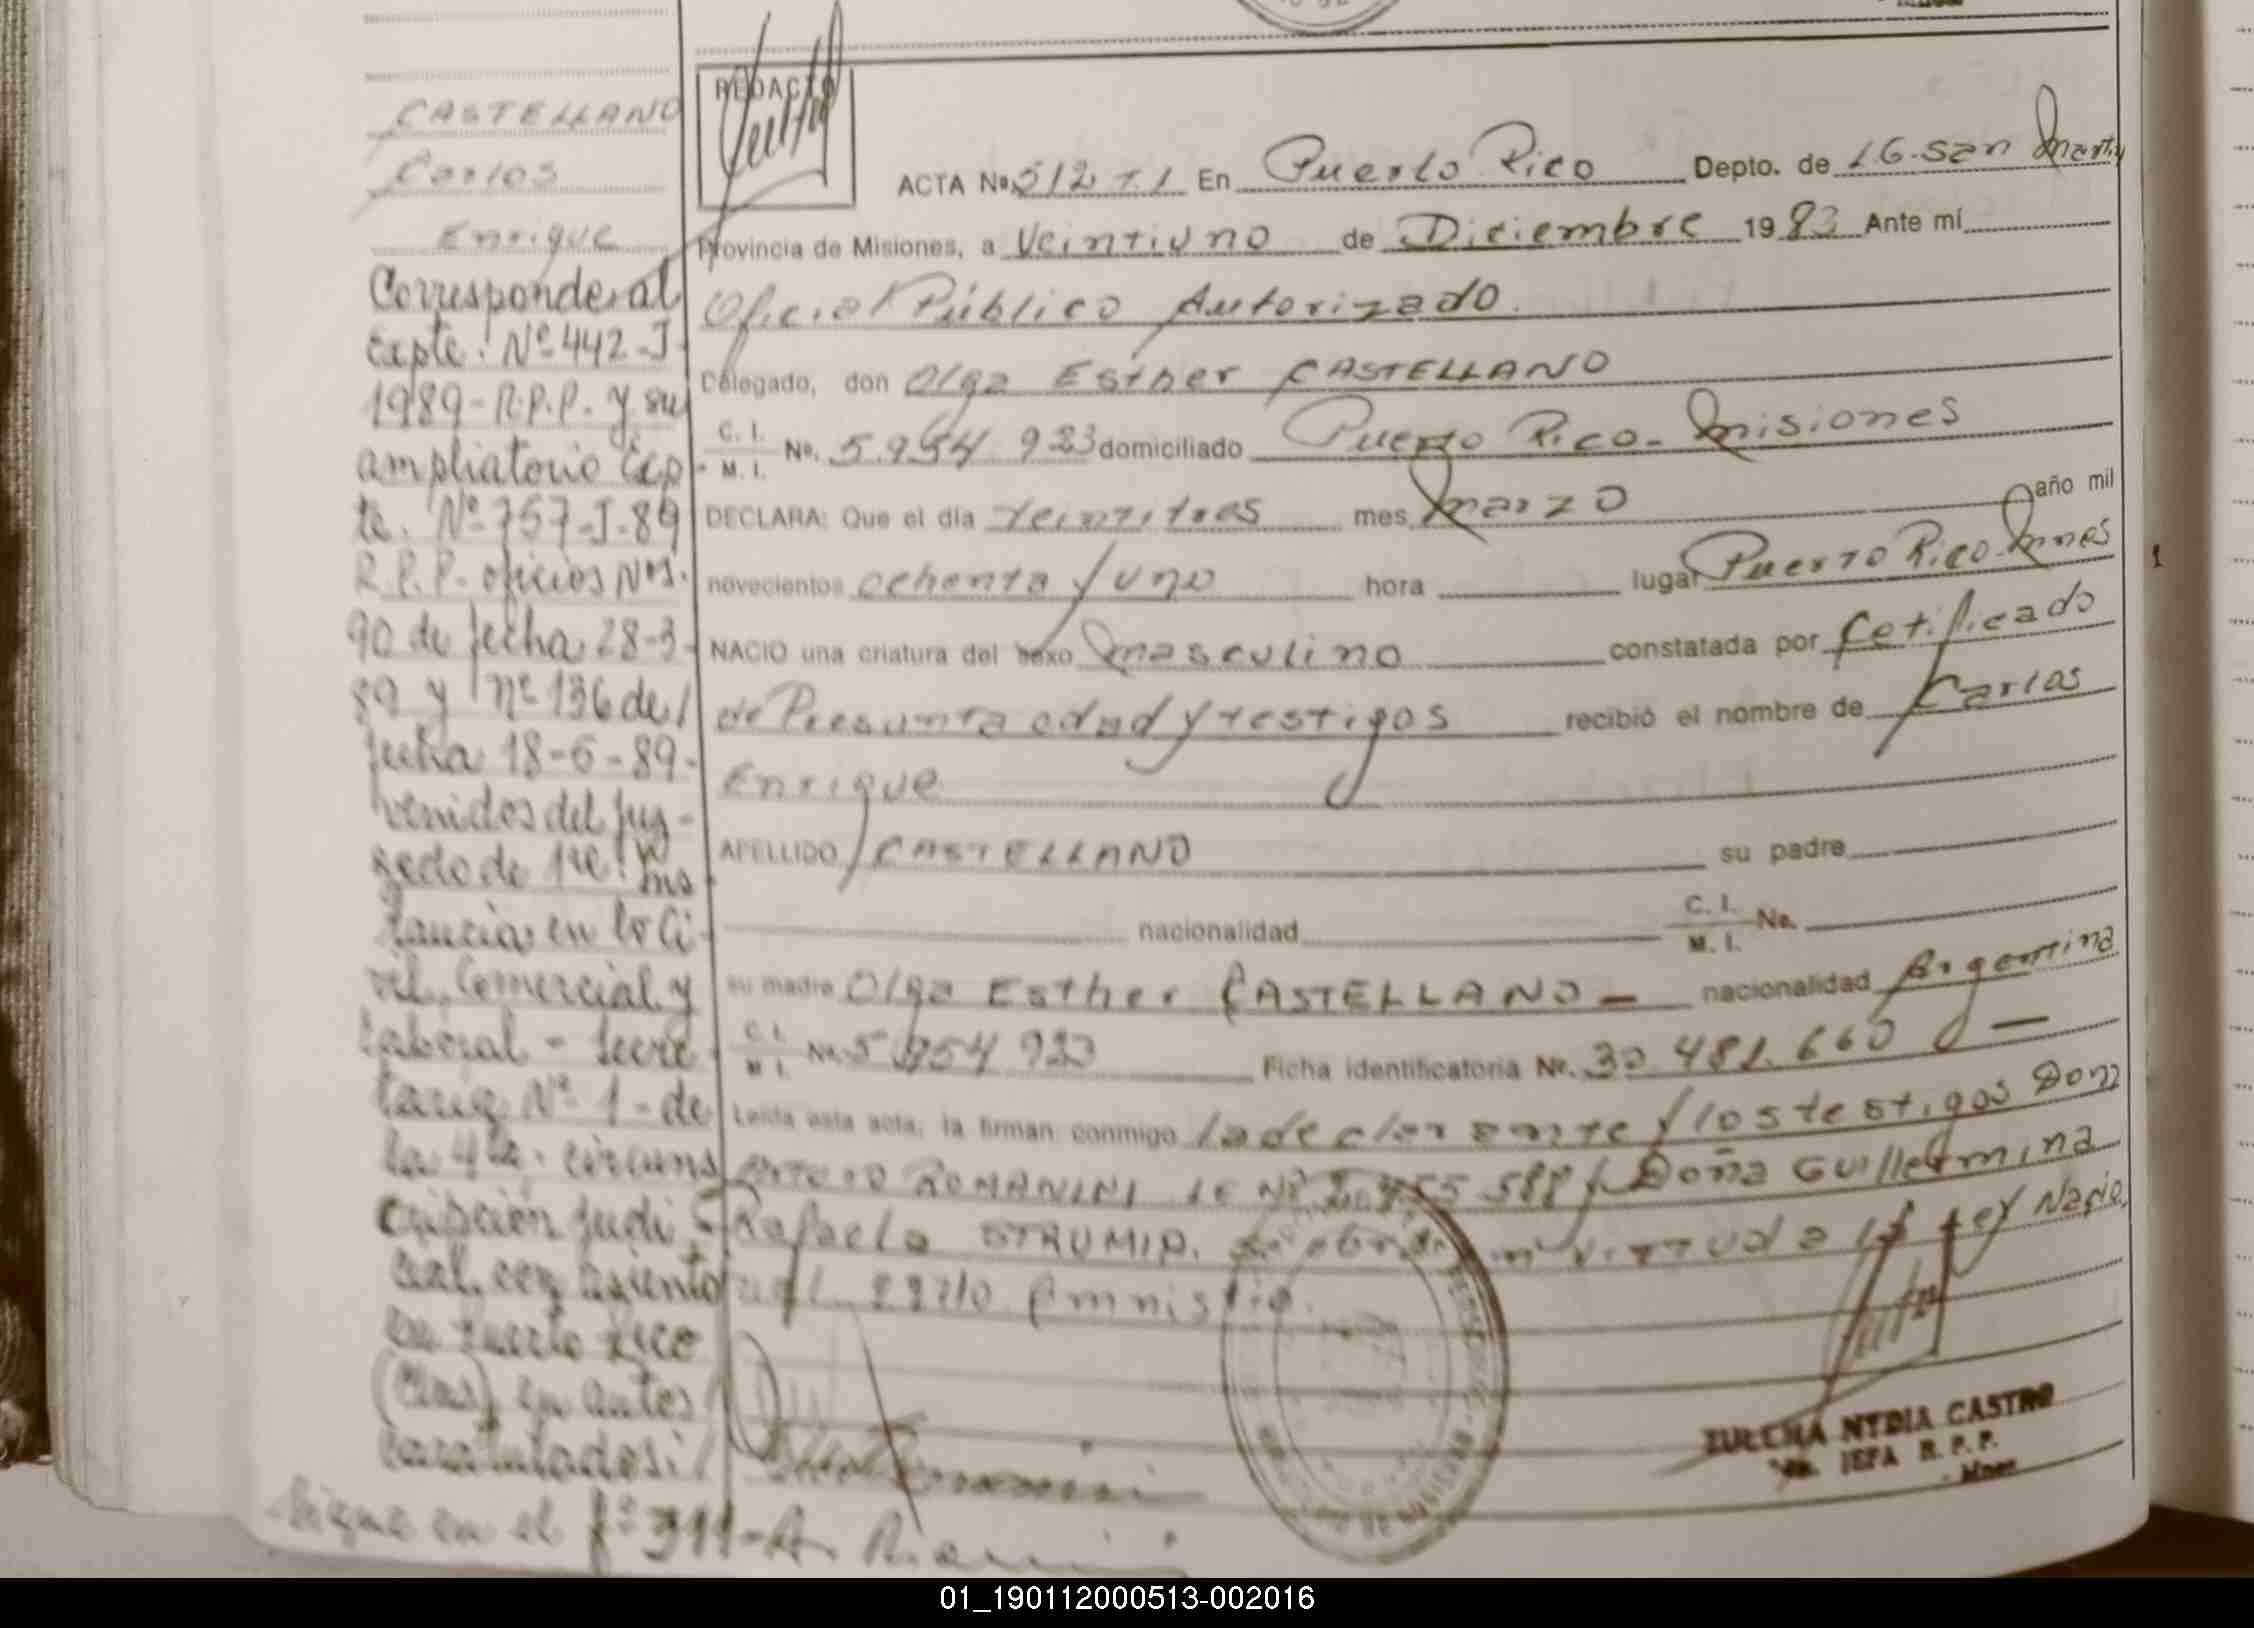 CASTELLANO
Carlos
Enrique
Corresponde al
Expte. Nº 442-J-
1989-R.P.P. y su
ampliatorio Exp-
te. Nº 757-J-89
R.P.P. oficios Nos.
90 de fecha 28-3-
89 y Nº 136 de
fecha 18-6-89-
venidos del Juz-
gado de 1ra. Ins
tancia en lo Ci-
vil, Comercial y
Laboral - Secre
taria Nº 1 - de
la 4ta. circuns
cripción Judi
cial, con asiento
en Puerto Rico
en autos
caratulados:
Sigue en el fº 311-A.
REDACTO
ACTA No. 512 T. I En Puerto Rico Depto. de L.G. San Martin
Provincia de Misiones, a Veintiuno de Diciembre 1983 Ante mí
Oficial Público Autorizado.
Delegado, don Olga Esther CASTELLANO
C. I.
M. I. No. 5.954 923 domiciliado Puerto Rico - Misiones
DECLARA: Que el día veintitres mes Marzo año mil
novecientos ochenta y uno hora lugar Puerto Rico Mnes
NACIO una criatura del sexo Masculino constatada por Cetificado
de Presunta edad y testigos recibió el nombre de Carlos
Enrique
APELLIDO CASTELLANO su padre
nacionalidad C. I.
M. I. No.
su madre Olga Esther CASTELLANO - nacionalidad Argentina
C. I.
M. I. No. 5 954 923 Ficha identificatoria No. 30.481.660 -
Leída esta acta, la firman conmigo la declarante y los testigos Don
ROMANINI LE Nº 588 y Doña Guillermina
Rafaela STRUMIA. en virtud a la Ley Nacio
nal 22710 Amnistia.
ZULEMA NYDIA CASTRO
JEFA R. P. P.
Mnes
01_190112000513-002016